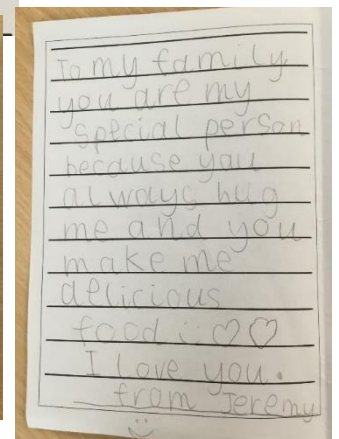 To my family
you are my
special person
because you
always hug
me and you
make me
delicious
food :: ♡♡
I love you.
from Jeremy